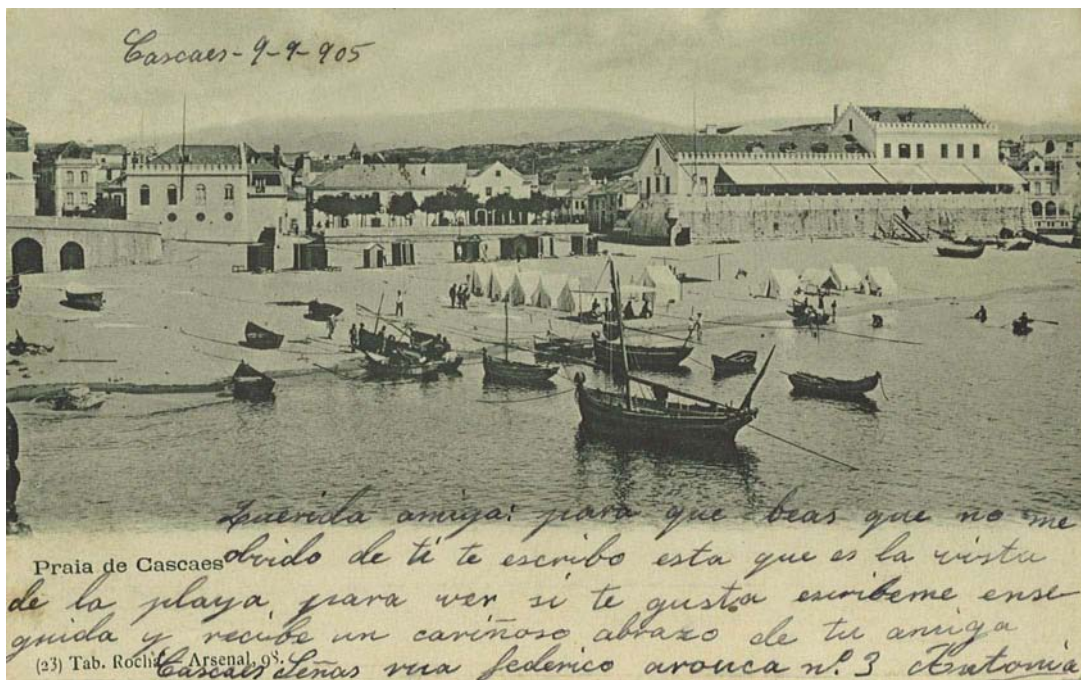 Cascaes-9-9-905
Querida amiga: para que beas que no me
Praia de Cascaes
olvido de ti te escribo esta que es la vista
de la playa, para ver si te gusta escribeme ense-
guida y recibe un cariñoso abrazo de tu amiga
(23) Tab. Rocha Arsenal, 98.
Cascaes Señas rua federico arouca nº 3 Antonia